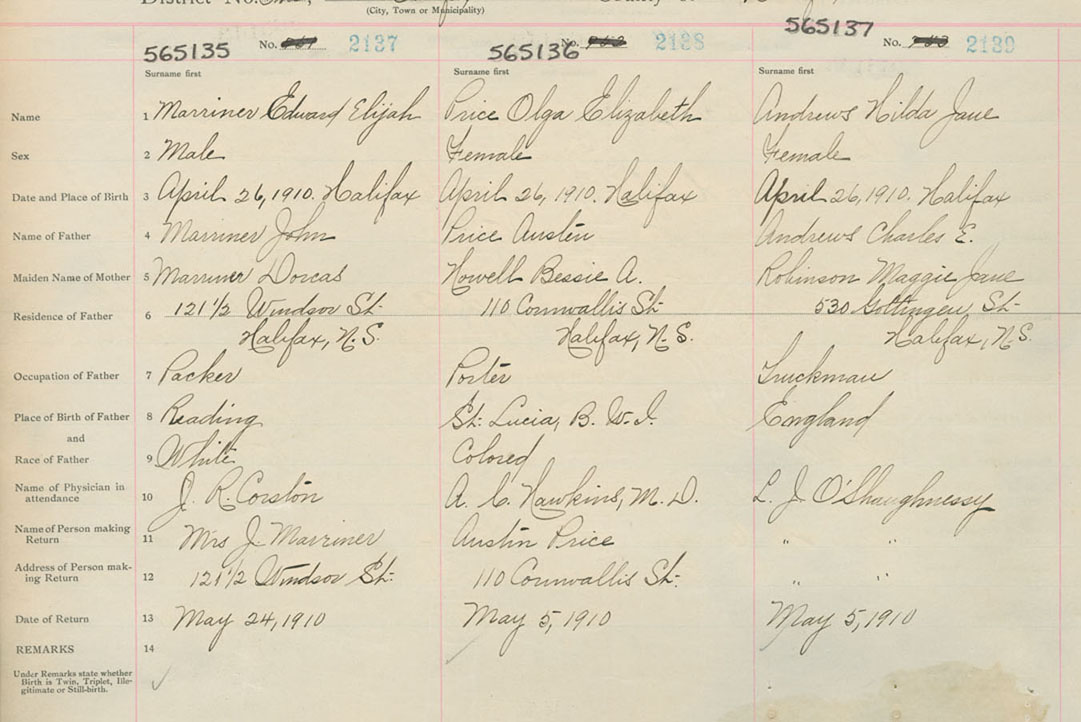 District No.
(City, Town or Municipality)
565135 No. 2137 565136 No. 2138 565137 No. 2139
Surname first Surname first Surname first
Name 1 Marriner Edward Elijah Price Olga Elizabeth Andrews Hilda Jane
Sex 2 Male Female Female
Date and Place of Birth 3 April 26, 1910. Halifax April 26, 1910. Halifax April 26, 1910. Halifax
Name of Father 4 Marriner John Price Austin Andrews Charles E.
Maiden Name of Mother 5 Marriner Dorcas Howell Bessie A. Robinson Maggie Jane
Residence of Father 6 121 1/2 Windsor St. 110 Cornwallis St. 530 Gottingen St.
Halifax, N.S. Halifax, N.S. Halifax, N.S.
Occupation of Father 7 Packer Porter Truckman
Place of Birth of Father 8 Reading St. Lucia, B. W. I. England
and
Race of Father 9 White Colored
Name of Physician in
attendance 10 J. R. Corston A. C. Hawkins, M. D. L. J. O'Shaughnessy
Name of Person making
Return 11 Mrs J. Marriner Austin Price " "
Address of Person mak-
ing Return 12 121 1/2 Windsor St. 110 Cornwallis St. " "
Date of Return 13 May 24, 1910 May 5, 1910 May 5, 1910
REMARKS 14
Under Remarks state whether
Birth is Twin, Triplet, Ille-
gitimate or Still-birth.